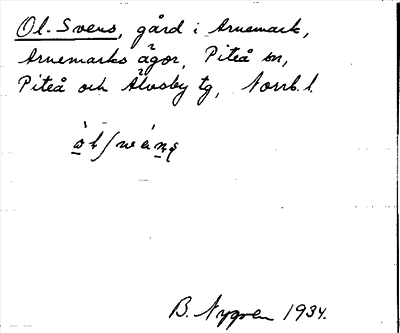 Ol-Svens, gård i Arnemark,
Arnemarks ägor, Piteå sn,
Piteå och Älvsby tg, Norrb. l.
B. Nygren 1934.